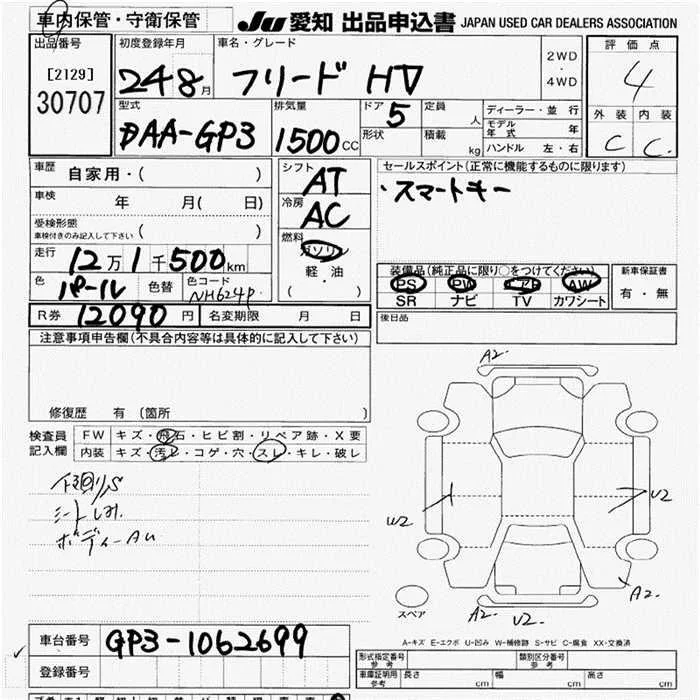 車内保管・守衛保管
JU 愛知 出品申込書 JAPAN USED CAR DEALERS ASSOCIATION
出品番号
[2129]
30707
初度登録年月
24 8月
車名・グレード
フリード HV
2WD
・
4WD
評価点
4
外装 内装
C C
型式
DAA-GP3
排気量
1500cc
ドア 5
形状
定員 人
積載 kg
ディーラー・並行
モデル年式 年
ハンドル 左・右
車歴 自家用・( )
車検 年 月( 日)
受検形態
車検付きのみ記入して下さい ( )
走行 12万1千500km
色 パール 色替 色コード NH624P
R券 12090円 名変期限 月 日
シフト AT
冷房 AC
燃料
ガソリン
軽・油
( )
セールスポイント(正常に機能するものに限ります)
・スマートキー
装備品(純正品に限り○をつけてください)
PS PW エアB AW
SR ナビ TV カワシート
新車保証書
有・無
後日品
注意事項申告欄(不具合内容等は具体的に記入して下さい)
修復歴 有 (箇所 )
検査員記入欄
FW キズ・飛石・ヒビ割・リペア跡・X要
内装 キズ・汚レ・コゲ・穴・スレ・キレ・破レ
下回りS
シートしみ
ボディーAU
A2
U2
U2
A2
A2
U2
スペア
A-キズ E-エクボ U-凹み W-補修跡 S-サビ C-腐食 XX-交換済
車台番号 GP3-1062699
登録番号
型式指定番号 参考
類別区分番号 参考
車庫証明用 参考 長さ cm 幅 cm 高さ cm